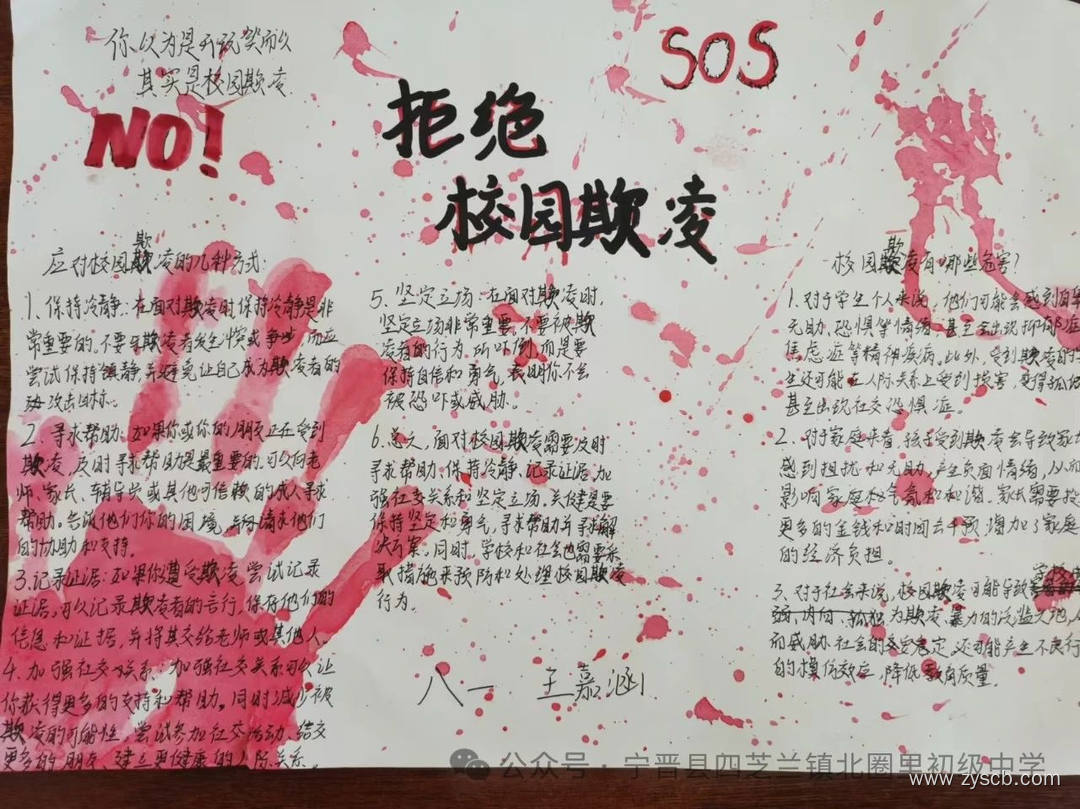 你以为是开玩笑而已
其实是校园欺凌
NO!
SOS
拒绝
校园欺凌
应对校园欺凌的几种方式:
1、保持冷静:在面对欺凌时保持冷静是非
常重要的。不要与欺凌者发生冲突或争吵,而应
尝试保持镇静,并避免让自己成为欺凌者的
攻击目标。
2、寻求帮助:如果你或你的朋友正在受到
欺凌,及时寻求帮助是最重要的。可以向老
师、家长、辅导员或其他可信赖的成人寻求
帮助。告诉他们你的困境,并请求他们
的协助和支持。
3.记录证据:如果你遭受欺凌,尝试记录
证据,可以记录欺凌者的言行,保存他们的
信息和证据,并将其交给老师或其他人。
4、加强社交关系:加强社交关系可以让
你获得更多的支持和帮助。同时减少被
欺凌的可能性,尝试参加社交活动、结交
更多的朋友,建立更健康的人际关系。
5、坚定立场:在面对欺凌时,
坚定立场非常重要,不要被欺
凌者的行为所吓倒,而是要
保持自信和勇气,表明你不会
被恐吓或威胁。
6.总之,面对校园欺凌需要及时
寻求帮助、保持冷静、记录证据、加
强社交关系和坚定立场。关健是要
保持坚定和勇气,寻求帮助并寻求解
决方案。同时,学校和社会也需要采
取措施来预防和处理校园欺凌
行为。
八一 王嘉涵
校园欺凌有哪些危害?
1.对于学生个人来说,他们可能会感到自卑
无助、恐惧等情绪,甚至会出现抑郁症
焦虑症等精神疾病。此外,受到欺凌的
生还可能在人际关系上受到损害,变得孤
甚至出现社交恐惧症。
2、对于家庭来看,孩子受到欺凌会导致家
感到担忧和无助,产生负面情绪,从而
影响家庭和气氛和和谐。家长需要投
更多的金钱和时间去干预,增加了家庭
的经济负担。
3、对于社会来说,校园欺凌可能导致
为欺凌、暴力的泛滥之地,
而威胁社会的稳定,还可能产生不良行
的模仿效应,降低教育质量。
公众号·宁晋县四芝兰镇北圈里初级中学
www.zyscb.com